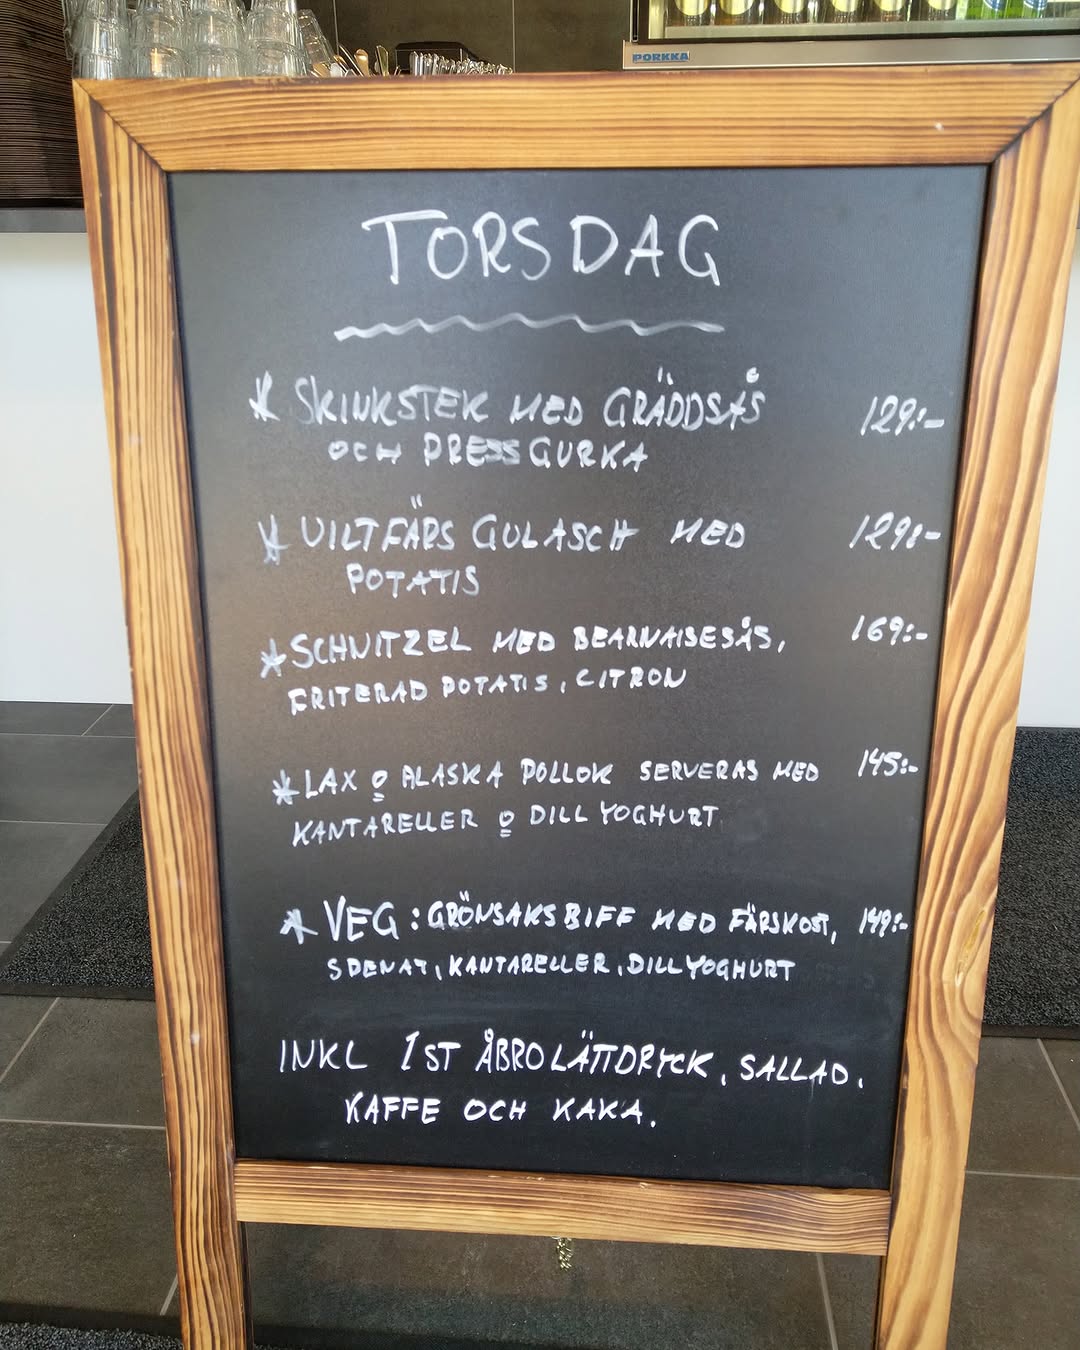 PORKKA
TORSDAG
* SKINKSTEK MED GRÄDDSÅS 129:-
OCH PRESSGURKA
* VILTFÄRS GULASCH MED 129:-
POTATIS
* SCHNITZEL MED BEARNAISESÅS, 169:-
FRITERAD POTATIS, CITRON
* LAX o ALASKA POLLOK SERVERAS MED 145:-
KANTARELLER o DILL YOGHURT
* VEG: GRÖNSAKSBIFF MED FÄRSKOST, 149:-
SPENAT, KANTARELLER, DILL YOGHURT
INKL 1 ST ÅBRO LÄTTDRYCK, SALLAD,
KAFFE OCH KAKA.